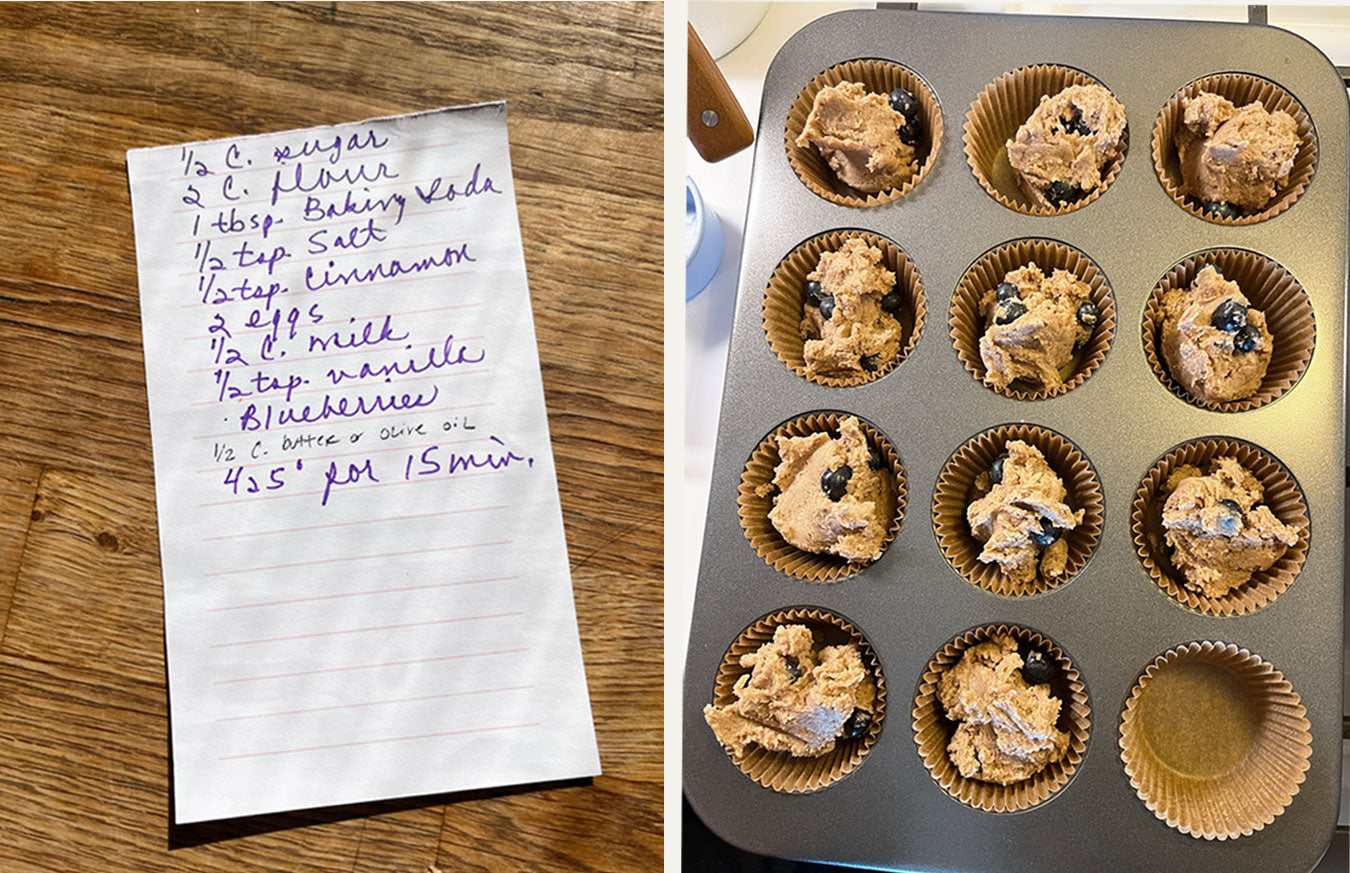 1/2 C. sugar
2 C. flour
1 tbsp. Baking Soda
1/2 tsp. Salt
1/2 tsp. Cinnamon
2 eggs
1/2 C. milk
1/2 tsp. vanilla
· Blueberries
1/2 C. butter or olive oil
425° for 15 min.